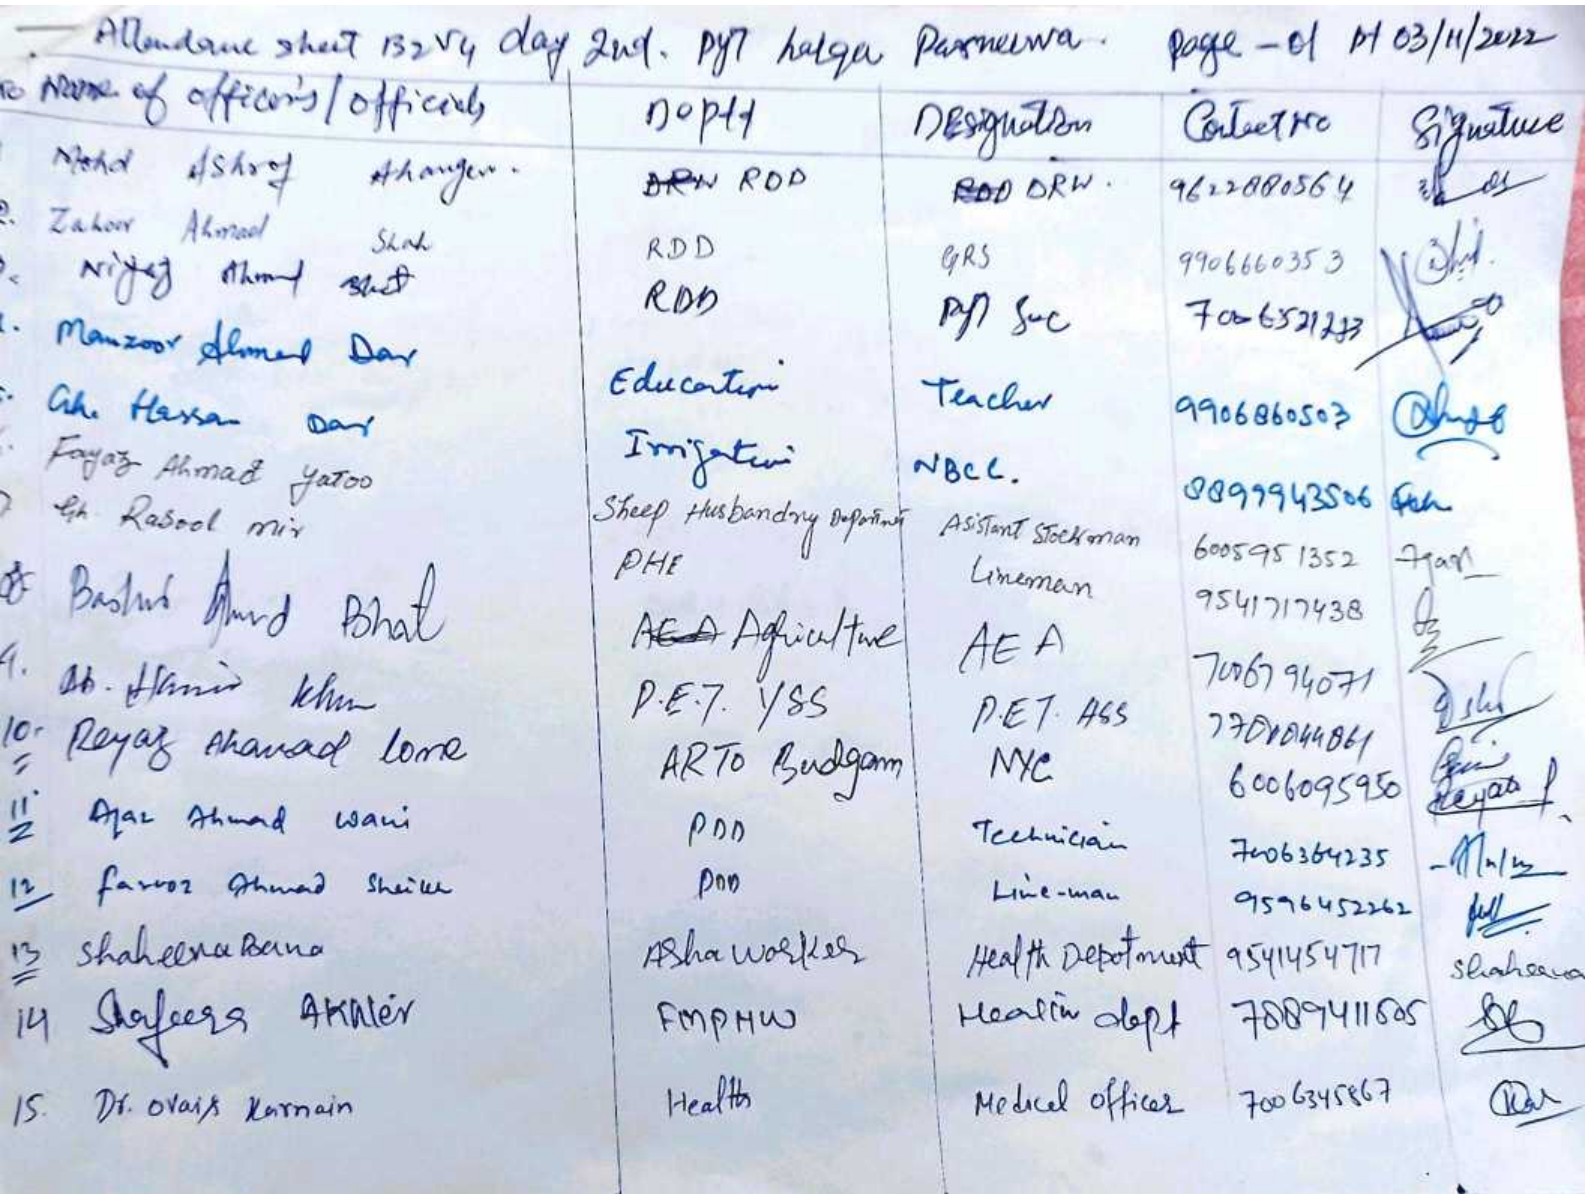 Attendance sheet B2V4 day 2nd. Pyt halqa Parnewa. Page - 01 Dt 03/11/2022
Name of officers/officials Deptt Designation Contact No Signature
Mohd Ashrof Ahanger. DRW RDD RDD DRW. 9622880564
2. Zahoor Ahmad Shah RDD GRS 9906660353
Niyaz Ahmad Bhat RDD Pyt Sec
Manzoor Ahmed Dar Education Teacher 9906860503
Gh. Hassan Dar Irrigation NBCC. 8899943506
Fayaz Ahmad Yatoo Sheep Husbandry Department Asistant Stockman 6005951352
Gh. Rasool mir PHE Lineman 9541717438
8 Bashir Ahmad Bhat AEA Agriculture AEA 7006794071
9. Ab. Hamid Khan P.E.T. YSS P.E.T. ASS
10. Reyaz Ahamad lone ARTO Budgam NYC 6006095950 Reyaz
11 Ajaz Ahmad wani PDD Technician 7006364235
12 farooz Ahmad Sheikh PDD Line-man 9596452262
13 Shaheena Bano Asha worker Health Depotment 9541454717 Shaheena
14 Shafeera AKhter FMPHW Health dept 7889411605
15. Dr. Ovais Karnain Health Medical officer 7006345867